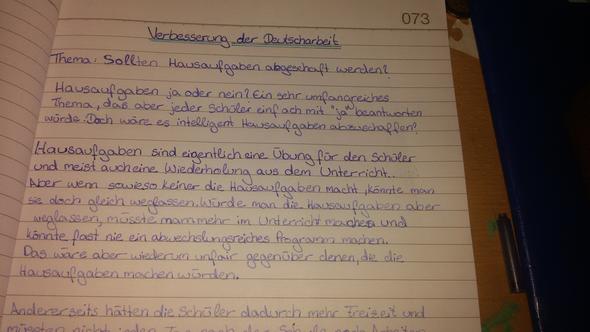 073
Verbesserung der Deutscharbeit
Thema: Sollten Hausaufgaben abgeschaft werden?
Hausaufgaben ja oder nein? Ein sehr umfangreiches
Thema, das aber jeder Schüler einfach mit "ja" beantworten
würde. Doch wäre es intelligent Hausaufgaben abzuschaffen?
Hausaufgaben sind eigentlich eine Übung für den Schüler
und meist auch eine Wiederholung aus dem Unterricht..
Aber wenn sowieso keiner die Hausaufgaben macht, könnte man
sie doch gleich weglassen. Würde man die Hausaufgaben aber
weglassen, müsste man mehr im Unterricht machen und
könnte fast nie ein abwechslungsreiches Programm machen.
Das wäre aber wiederum unfair gegenüber denen, die die
Hausaufgaben machen würden.
Andererseits hätten die Schüler dadurch mehr Freizeit und
müssten nicht jeden Tag nach der Schule noch